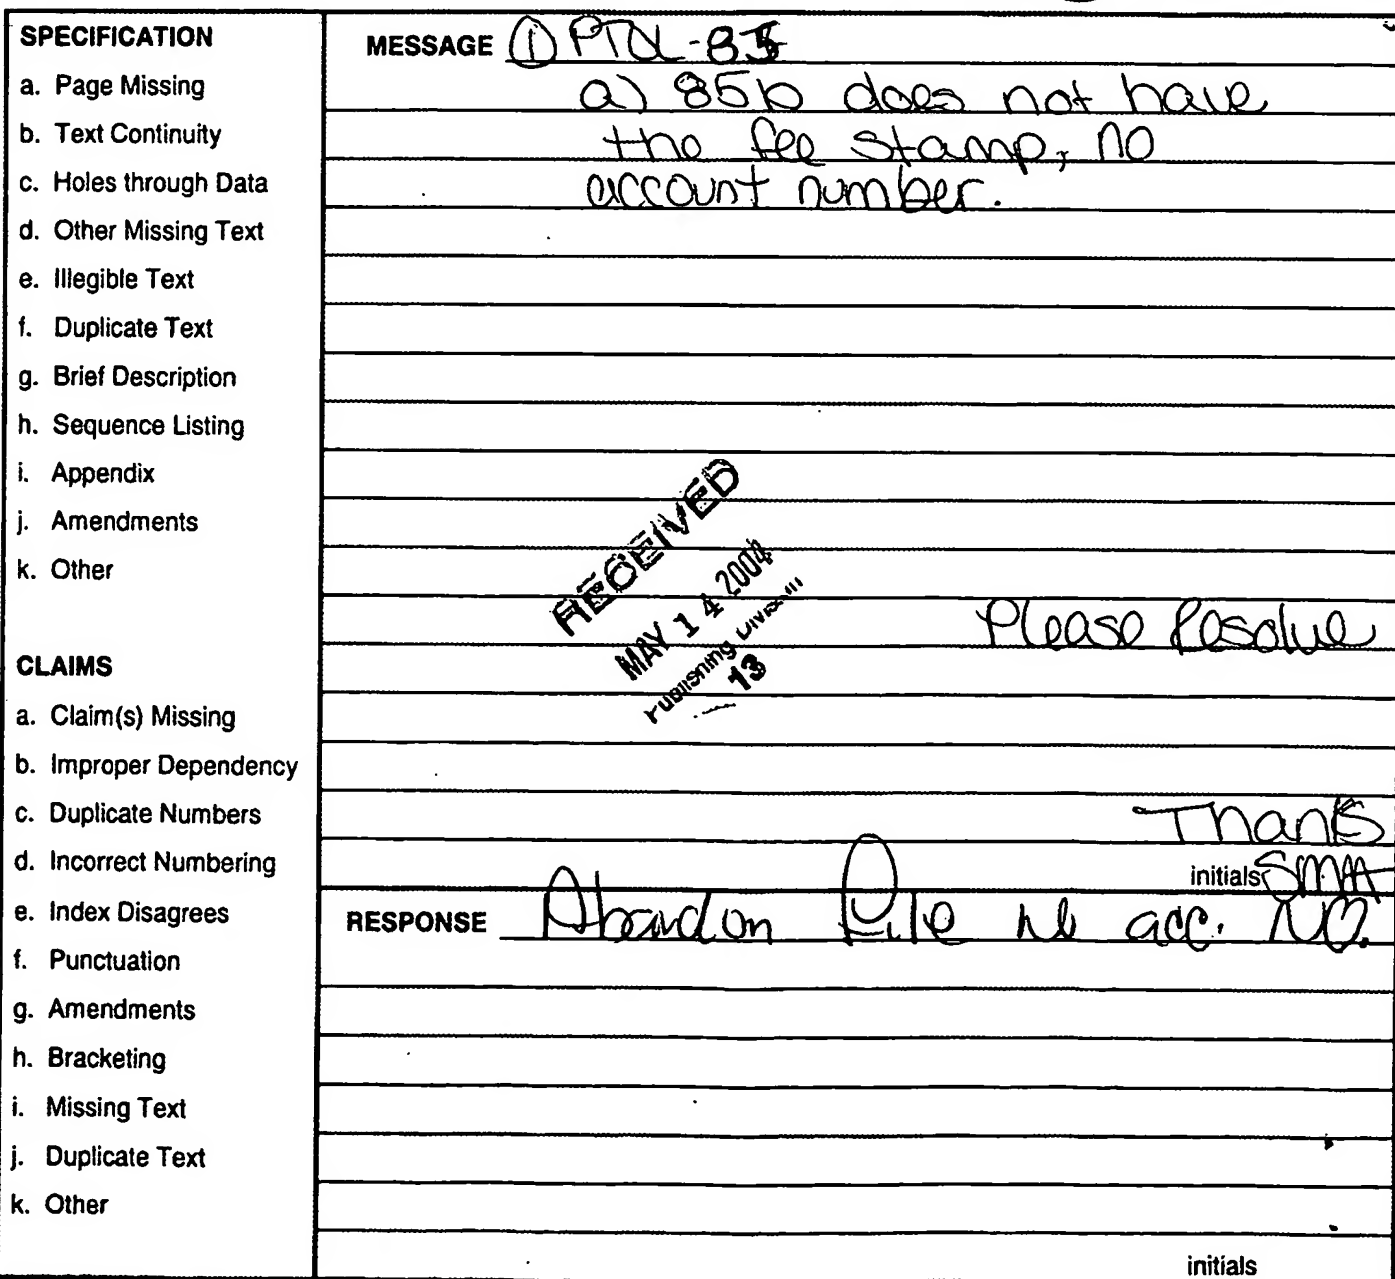 SPECIFICATION
a. Page Missing
b. Text Continuity
c. Holes through Data
d. Other Missing Text
e. Illegible Text
f. Duplicate Text
g. Brief Description
h. Sequence Listing
i. Appendix
j. Amendments
k. Other
CLAIMS
a. Claim(s) Missing
b. Improper Dependency
c. Duplicate Numbers
d. Incorrect Numbering
e. Index Disagrees
f. Punctuation
g. Amendments
h. Bracketing
i. Missing Text
j. Duplicate Text
k. Other
MESSAGE ① PTOL-85
a) 85b does not have
the fee stamp, no
account number.
RECEIVED
MAY 14 2004
Publishing Division
13
Please Resolve
Thanks
initials
RESPONSE Abandon File no acc. NO.
initials